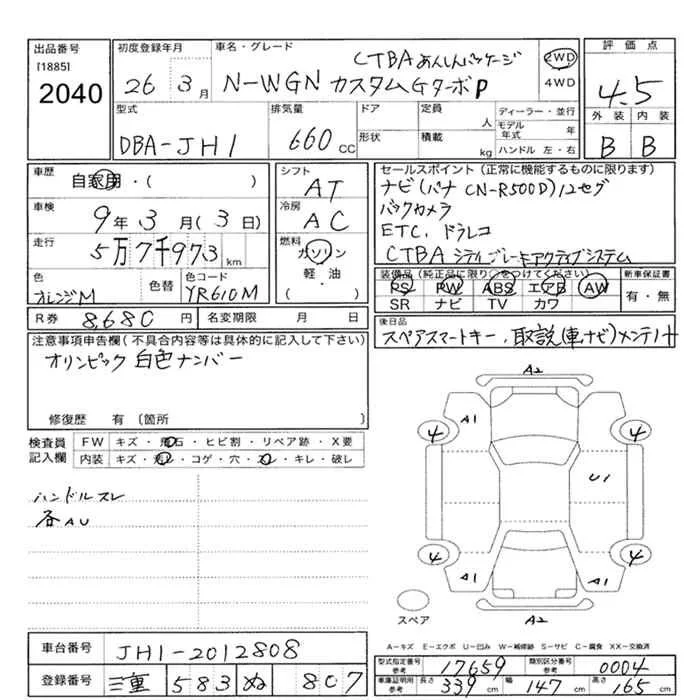 出品番号
[1885]
2040
初度登録年月
26年3月
車名・グレード
CTBAあんしんパッケージ
N-WGN カスタムGターボP
2WD
4WD
評価点
4.5
外装 内装
B B
型式
DBA-JH1
排気量
660 CC
ドア
形状
定員 人
積載 kg
ディーラー・並行
モデル年式 年
ハンドル 左・右
車歴
自家用・( )
車検
9年3月(3日)
走行
5万7千973 km
色
オレンジM
色替
色コード
YR610M
シフト
AT
冷房
AC
燃料
ガソリン
軽・油
( )
セールスポイント(正常に機能するものに限ります)
ナビ(パナ CN-R500D)12セグ
バックカメラ
ETC、ドラレコ
CTBA シティブレーキアクティブシステム
装備品(純正品に限り○をつけてください)
PS PW ABS エアB AW
SR ナビ TV カワ
新車保証書
有・無
R券 8,680円
名変期限 月 日
後日品
スペアスマートキー、取説(車、ナビ)メンテノート
注意事項申告欄(不具合内容等は具体的に記入して下さい)
オリンピック白色ナンバー
修復歴 有(箇所 )
検査員記入欄
FW キズ・飛石・ヒビ割・リペア跡・X要
内装 キズ・・コゲ・穴・スレ・キレ・破レ
ハンドルスレ
各AU
A2
A1
4 4
U1
4 4
A1 A1
A2
スペア
A-キズ E-エクボ U-凹み W-補修跡 S-サビ C-腐食 XX-交換済
車台番号
JH1-2012808
登録番号
三重 583 ぬ 807
型式指定番号 参考
17659
類別区分番号 参考
0004
車庫証明用 参考
長さ 339 cm
幅 147 cm
高さ 165 cm